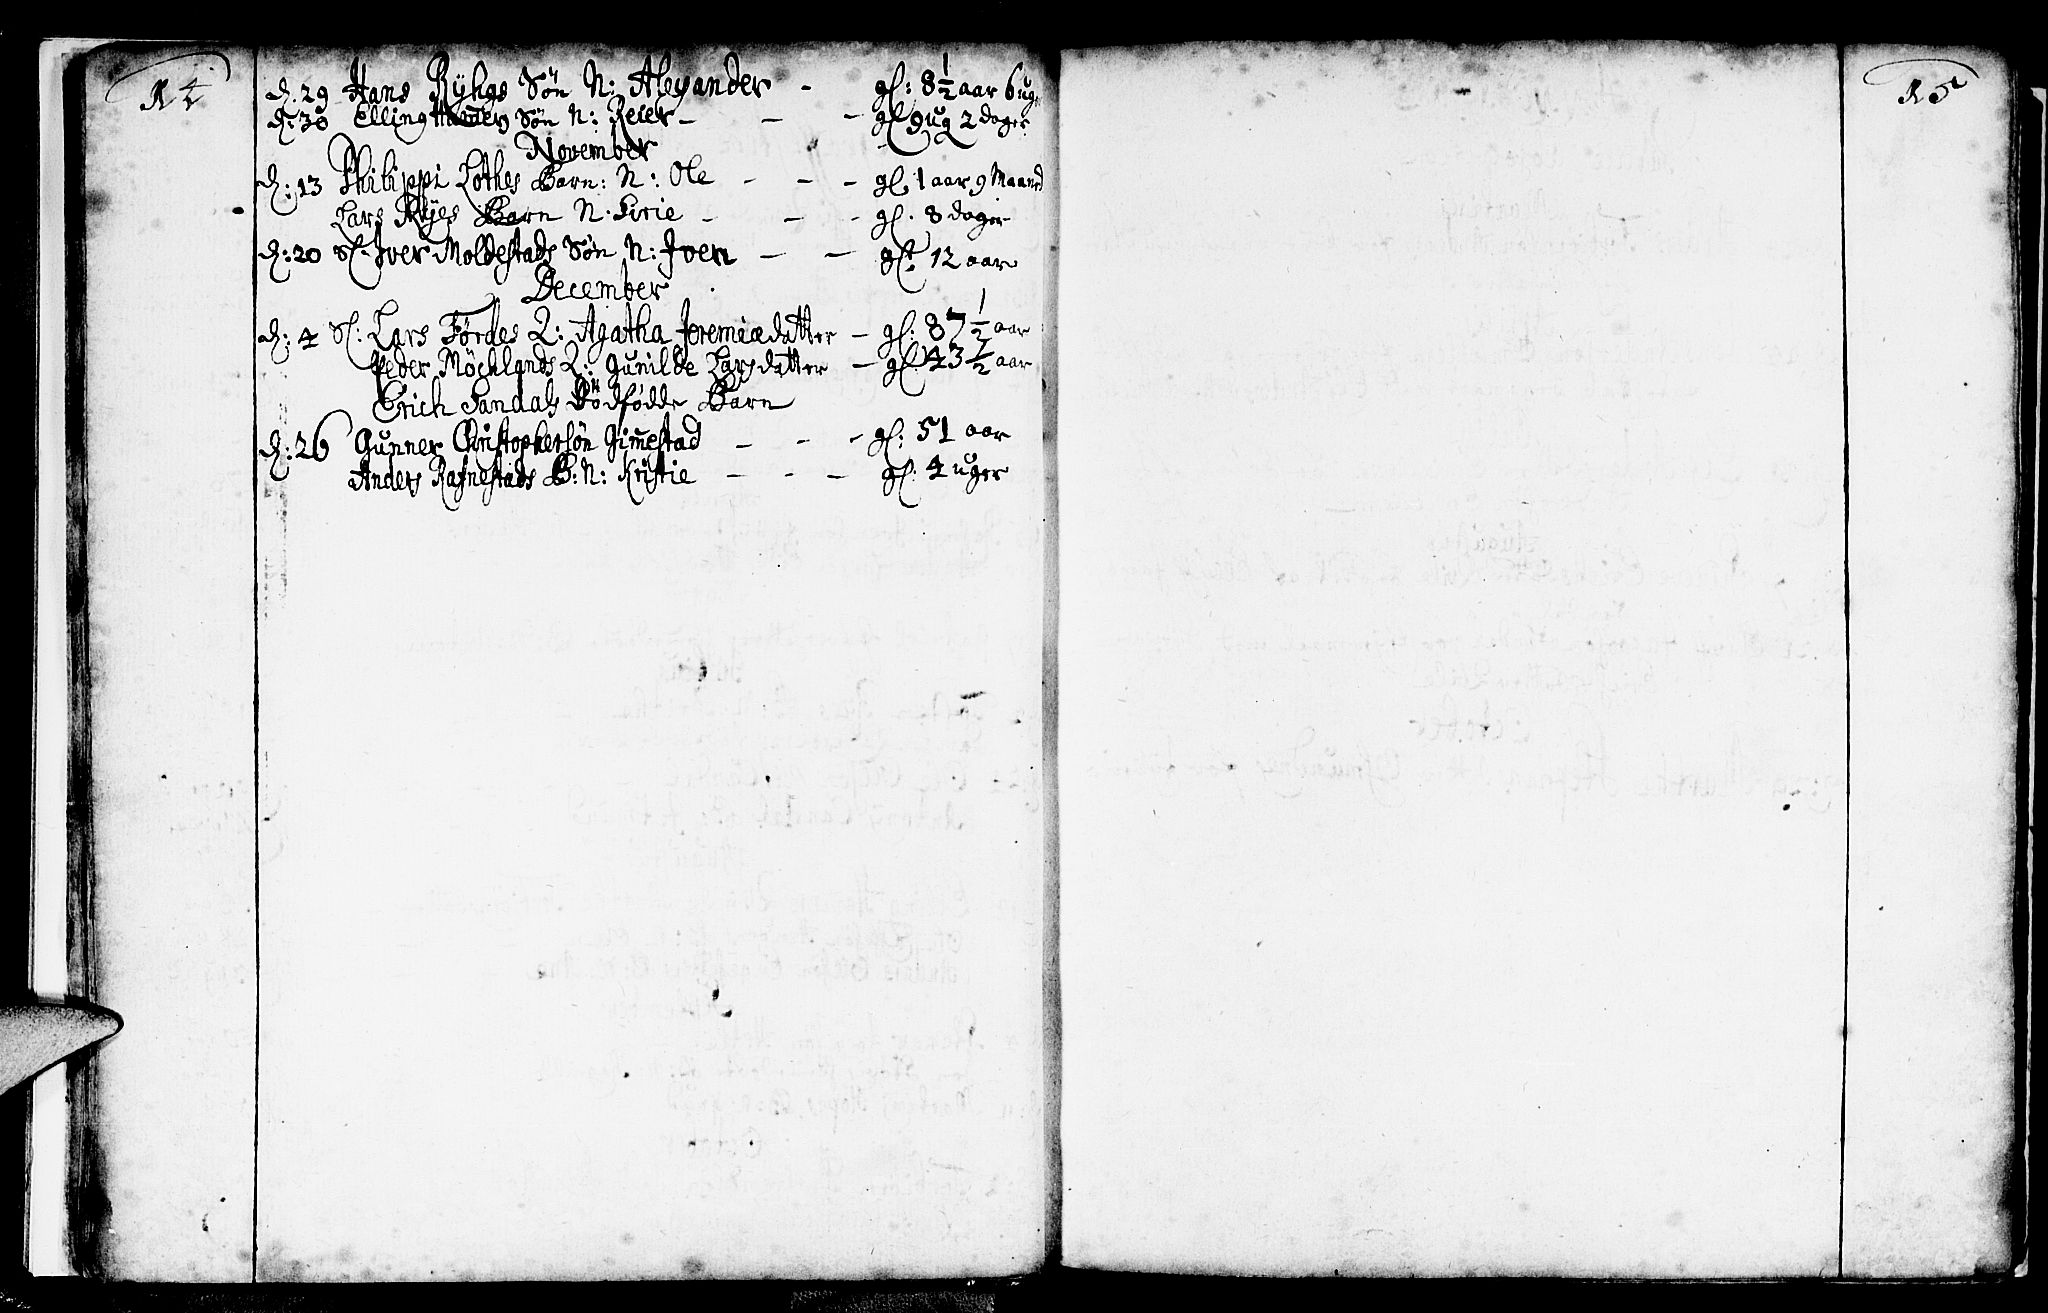 14
d: 29 Hans Ryhgs Søn N: Alexander - gl: 8 1/2 aar 6 uger
d: 30 Elling Søn N: Reier - - - gl 9 ug 2 dager
November
d: 13 Philippi Lothes Barn: N: Ole - - - gl. 1 aar 9 Maaned
Lars Ryes Barn N. Sirie - - - gl. 8 dager
d: 20 Sl. Iver Moldestads Søn N: Iver - - gl. 12 aar
December
d: 4 Sl: Lars Førdes Q: Agatha Jeremiædatter - gl: 87 1/2 aar
Peder Möchlands Q: Gunilde Larsdatter - gl. 43 1/2 aar
Erich Sandals Dödfödde Barn
d: 26 Gunner Christophersøn Gim̄estad - - - gl: 51 aar
Anders Rafnestads B: N: Kristie - - - gl. 4 uger
15